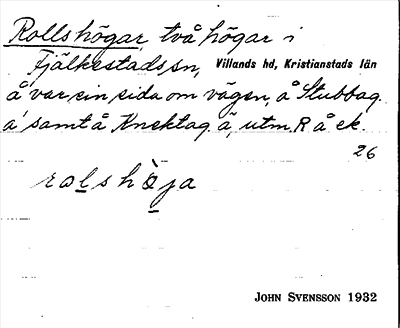 Rollshögar, två högar i
Fjälkestads sn, Villands hd, Kristianstads län
å var sin sida om vägen, å Stubbag.
ä, samt å Knektag. ä, utm. R å ek.
26
rolshöja
John Svensson 1932